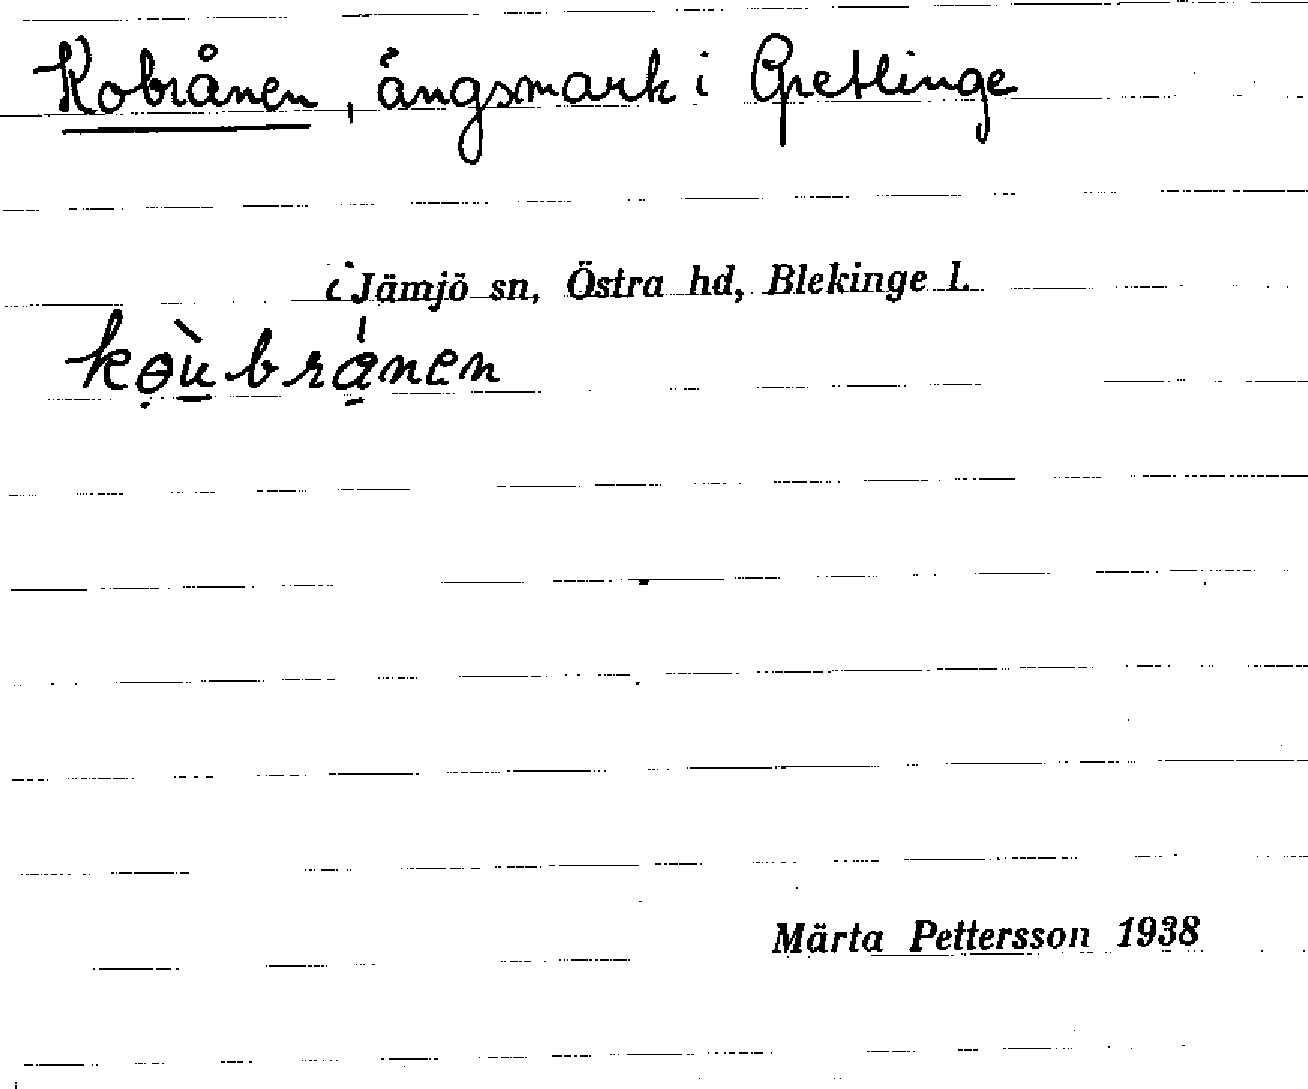 Kobrånen, ängsmark i Gretlinge
i Jämjö sn, Östra hd, Blekinge l.
kɵ̣ùbránen
Märta Pettersson 1938